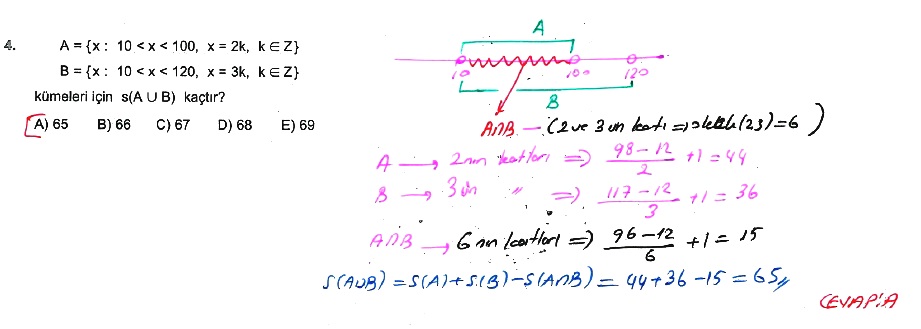 4. A = {x : 10 < x < 100, x = 2k, k ∈ Z}
B = {x : 10 < x < 120, x = 3k, k ∈ Z}
kümeleri için s(A ∪ B) kaçtır?
A) 65 B) 66 C) 67 D) 68 E) 69
A
10 100 120
B
A∩B — (2 ve 3 ün katı => okek(2,3)=6)
A → 2 nin katları => (98-12)/2 +1 = 44
B → 3 ün " => (117-12)/3 +1 = 36
A∩B → 6 nın katları => (96-12)/6 +1 = 15
S(A∪B) = S(A)+S(B)-S(A∩B) = 44+36-15 = 65//
CEVAP:A